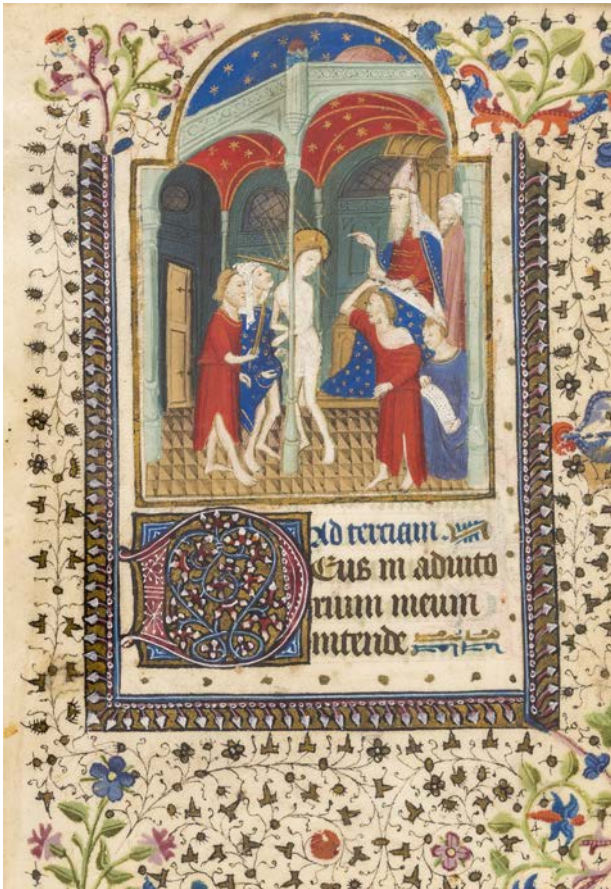 Ad terciam.
Deus in adiuto
rium meum
intende